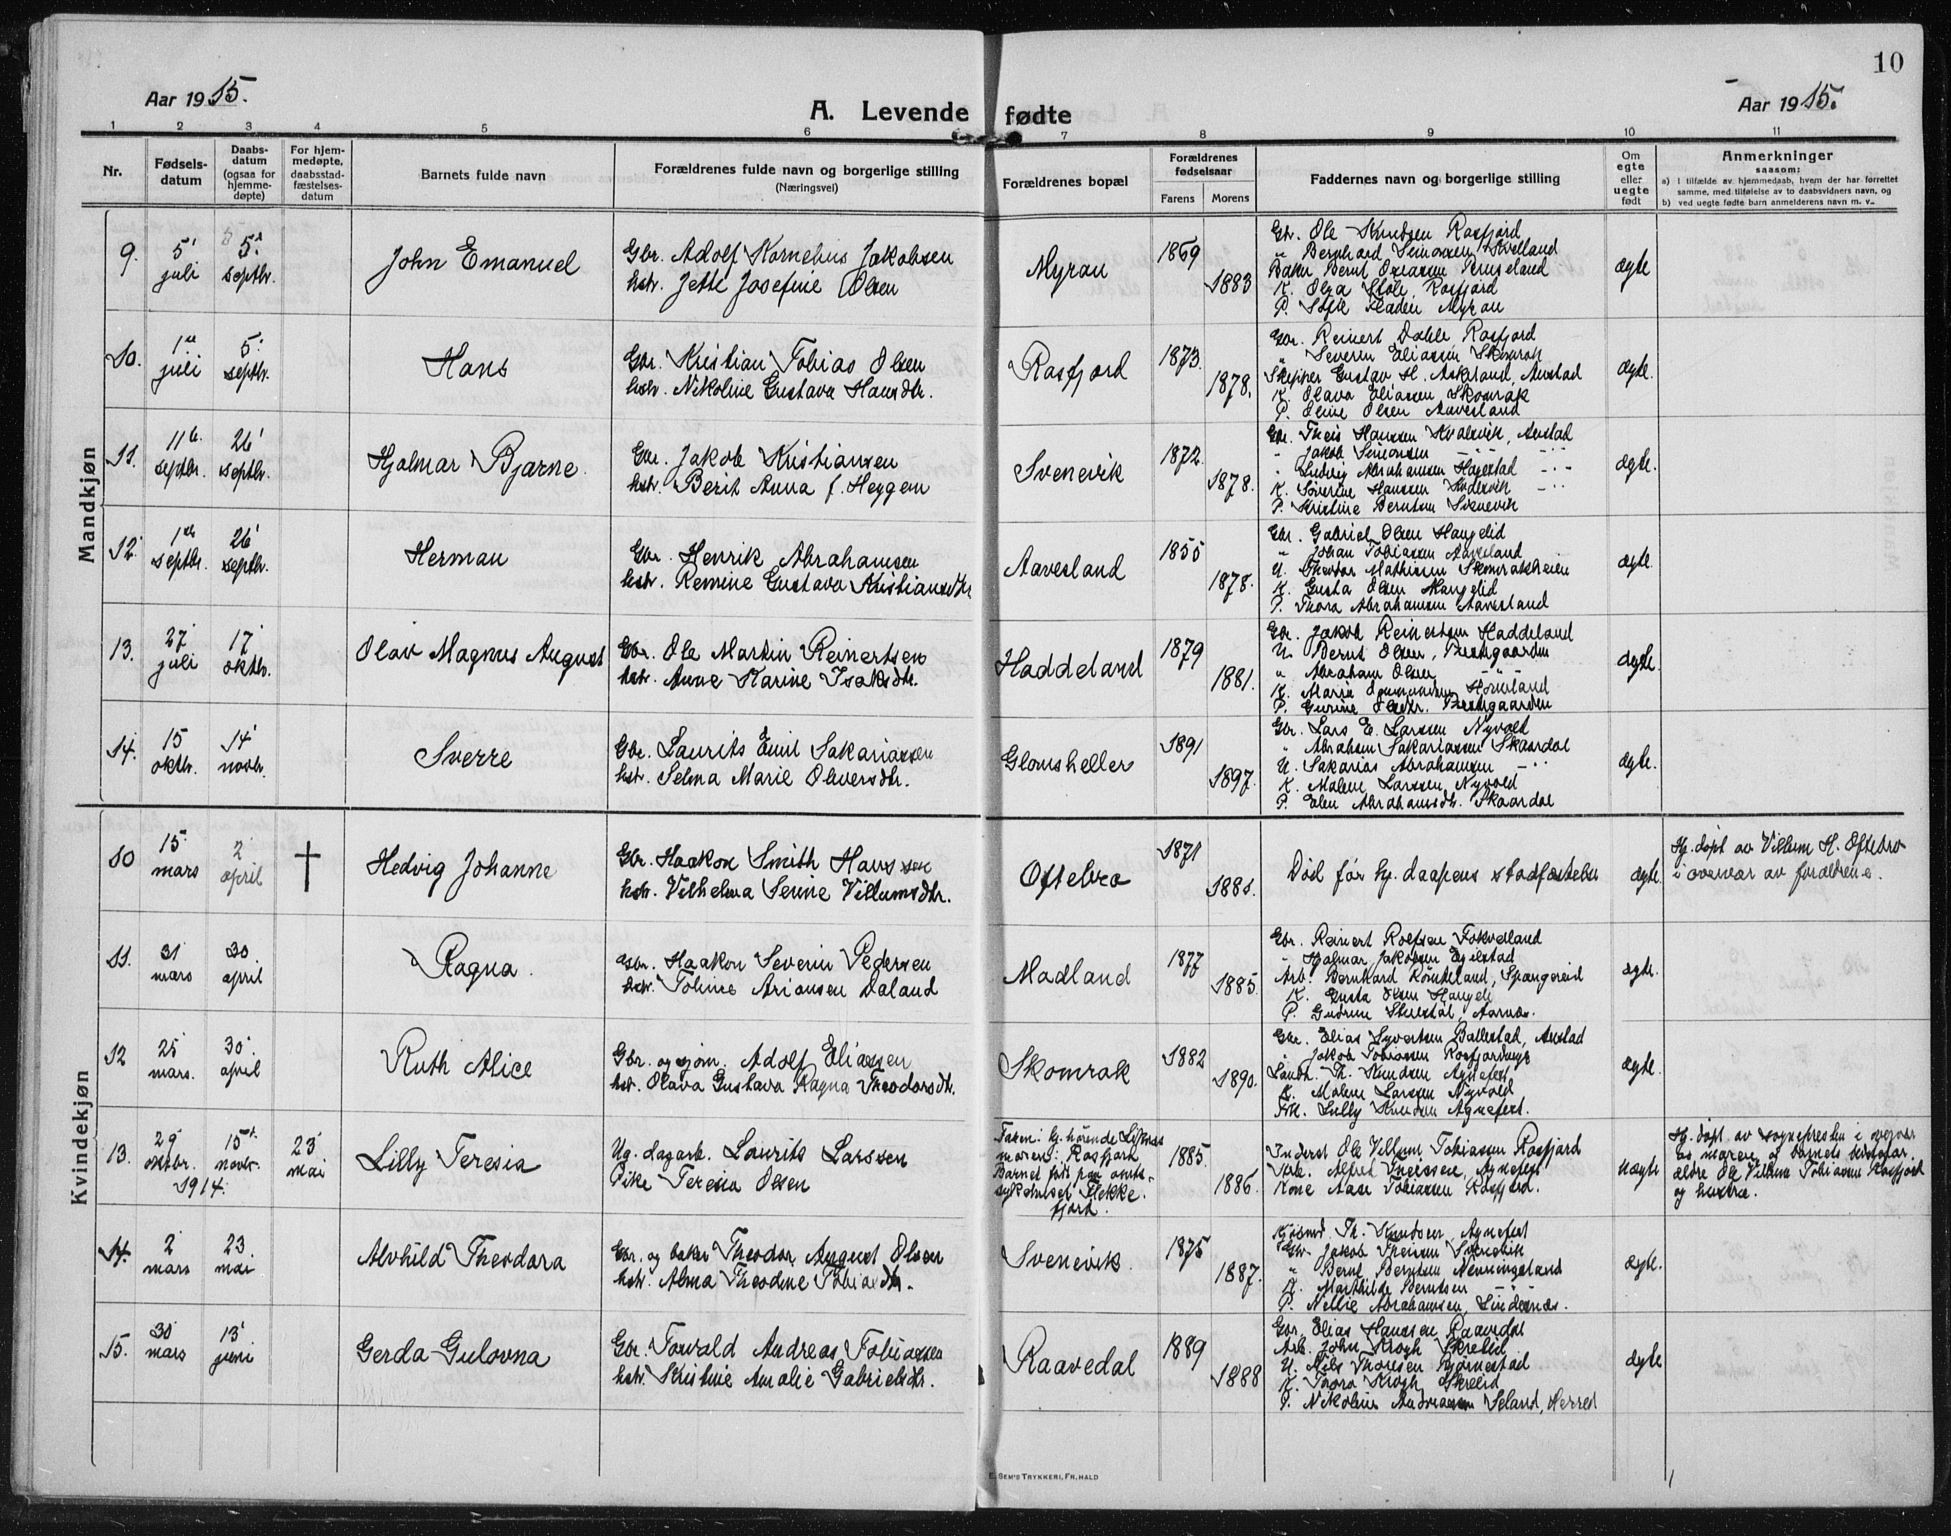 10
Aar 1915.
A. Levende fødte
Aar 1915.
1 2 3 4 5 6 7 8 9 10 11
Nr.
Fødsels-
datum
Daabs-
datum
(ogsaa for
hjemme-
døpte)
For hjem-
medøpte,
daabsstad-
fæstelses-
datum
Barnets fulde navn
Forældrenes fulde navn og borgerlige stilling
(Næringsvei)
Forældrenes bopæl
Forældrenes
fødselsaar
Farens Morens
Faddernes navn og borgerlige stilling
Om
egte
eller
uegte
født
Anmerkninger
saasom:
a) i tilfælde av hjemmedaab, hvem der har forrettet
samme, med tilføielse av to daabsvidners navn, og
b) ved uegte fødte barn anmelderens navn m. v.
Mandkjøn
9. 5 juli 5. septbr. John Emanuel
Gbr. Adolf Kornelius Jakobsen
hstr. Jette Josefine Olsen
Myran 1869 1883
Gbr. Ole Knudsen Rosfjord
" Bernhard Simonsen Kvelland
K. Olga Stöle Rosfjord
ægte
10. 1 juli 5. septbr. Hans
Gbr. Kristian Tobias Olsen
hstr. Nikoline Gustava Hansdtr.
Rosfjord 1873. 1878.
Gbr. Reinert Dahle Rosfjord
" Severin Eliassen Skomrak
Skipper Gustav H. Askeland, Austad
K. Olava Eliassen Skomrak
P. Oline Olsen Aaversland
ægte.
11. 11 septbr. 26 septbr. Hjalmar Bjarne.
Gbr. Jakob Kristiansen
hstr. Berit Anna f. Heggem
Svenevik 1872. 1878.
Gbr. Theis Hanssen Kvalsvik, Austad
" Jakob Simonsen
" Ludvig Abrahamsen Hagestad
K. Severine Hanssen Kvalsvik
P. Kristine Berntsen Svenevik
ægte.
12. 1 septbr. 26 septbr. Herman
Gbr. Henrik Abrahamsen
hstr. Remine Gustava Kristiansdtr
Aaversland 1855 1878.
Gbr. Gabriel Olsen Haugelid
" Johan Tobiassen Aaversland
U. Theodor Mathisen Skomrakheien
K. Gusta Olsen Haugelid
P. Thora Abrahamsen Aaversland
ægte.
13. 27 juli 17 oktbr. Olav Magnus August
Gbr. Ole Martin Reinertsen
hstr. Anne Karine Isaksdtr.
Haddeland 1879 1881.
Gbr. Jakob Reinertsen Haddeland
U. Bernt Olsen, Prestgaarden
" Abraham Olsen
P. Gurine Olsdtr. Prestgaarden
ægte.
14. 15 oktbr. 14 novbr. Sverre
Gbr. Laurits Emil Sakariassen
hstr. Selma Marie Oliversdtr.
Glomsheller 1891 1897.
Gbr. Lars E. Larssen Nyvold
" Abraham Sakariassen Skaardal
U. Sakarias Abrahamsen
K. Malene Larssen Nyvold
P. Elen Abrahamsdtr. Skaardal
ægte.
Kvindekjøn
10 15. mars 2 april † Hedvig Johanne
Gbr. Haakon Smith Hanssen
hstr. Vilhelma Senne Villumsdtr.
Oftebro 1871 1881.
Död før hj. daapens stadfæstelse
ægte.
Hj. døpt av Villum H. Oftebro
i overvær av forældrene.
11. 31 mars 30. april Ragna.
Gbr. Haakon Severin Pedersen
hstr. Toline Ariansen Daland
Madland 1877 1885.
Gbr. Reinert Rolfsen Fokseland
" Hjalmar Jakobsen Egilstad
Arb. Bernhard Römteland, Spangereid
K. Gusta Olsen Haugeli
ægte.
12 25 mars. 30. april Ruth Alice
Gbr. og sjøm. Adolf Eliassen
hstr. Olava Gustava Ragna Theodorsdtr.
Skomrak 1882 1890.
Gbr. Elias Syvertsen Ballestad, Austad
" Jakob Tobiassen
Landh. Th. Knudsen Agnefest
K. Malene Larssen Nyvold
Frk. Lully Knudsen Agnefest.
ægte.
13. 29 oktbr. 1914. 15 novbr. 23 mai Lilly Teresia
Ug. dagarb. Laurits Larssen
Pike Teresia Olsen
Faren: hj. hörende Liknes
moren: Rosfjord
Barnet født paa amts-
sykehuset Flekke-
fjord.
1885. 1886.
Inderst Ole Villum Tobiassen Rosfjord
Arb. Alfred Iverssen, Agnefest
Kone Aase Tobiassen Rosfjord.
uægte
Hj. døpt av sognepresten i overvær
av moren og barnets bestefor-
ældre Ole Villum Tobiassen Rosfjord
og hustru.
14. 2 mars 23. mai Alvhild Theodora
Gbr. og baker Theodor August Olsen
hstr. Alma Theodine Tobiasdtr.
Svenevik. 1875 1887.
Kjøbmd. Th. Knudsen, Agnefest
Gbr. Jakob Theissen Svenevik
" Bernt Berntsen Nenningsland
K. Marthilde Berntsen
P. Nellie Abrahamsen, Lindesnæs.
ægte.
15. 30 mars 13 juni Gerda Gulovna
Gbr. Torvald Andreas Tobiassen
hstr. Kristine Amalie Gabrielsdtr.
Raavedal 1889 1888
Gbr. Elias Hanssen Raavedal
Arb. John Krogh Skrelid
U. Nils Thorsen Bjørnestad
K. Thora Krogh Skrelid
P. Nikoline Andreassen Seland, Herred
ægte
E. SEM'S TRYKKERI, FR.HALD